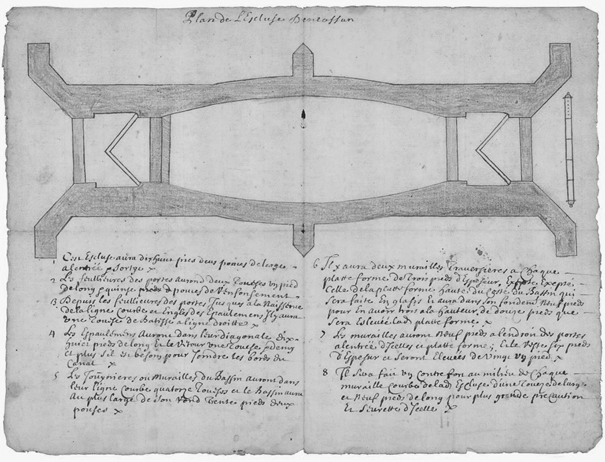 Plan de L'Escluse
1 Cette Escluse aura dix huit pieds deux pouces de large
a lentrée & sortye
2 Les feuillures des portes auront deux Touises un pied
de long & quinze pieds de
3 Depuis les feuillieures des portes Jusques a la Naissence
de la ligne Courbe et Engles des Espaulemens Il y aura
une Touise de Batisse a ligne droitte
4 Les Espaulemens Auront dans leur diagonale Dix
huit pieds de long Et le Retour une Touise & demy
et plus sil est besoing pour Joindre les bords du
Canal
5 Les ou Murailles du Bassin auront dans
leur ligne Courbe quatorze Touises et le Bassin aura
au plus large de son rond Trente pieds deux
pouses
6 Il y aura deux murailles Traversieres a Chaque
platte forme de trois pied d'Espesseur,
Celle de la platte forme haute du Costé du Bassin qui
Sera faite En glasis & aura dans son fondement Neuf pieds
pour En avoir trois a la hauteur de douze pieds que
Sera Eslevée la d. platte forme
7 Les murailles auront Neuf pieds a lendroit des portes
a lentrée d'Icelles et platte forme ; six pieds
d'Espesseur et Seront Elevées de Vingt un pied
8 Il Sera fait un Contrefort au milieu de Chaque
muraille Courbe de lad. Escluse d'une Touise de large
et Neuf pieds de long pour plus grande precaution
et Seurette d'Icelle